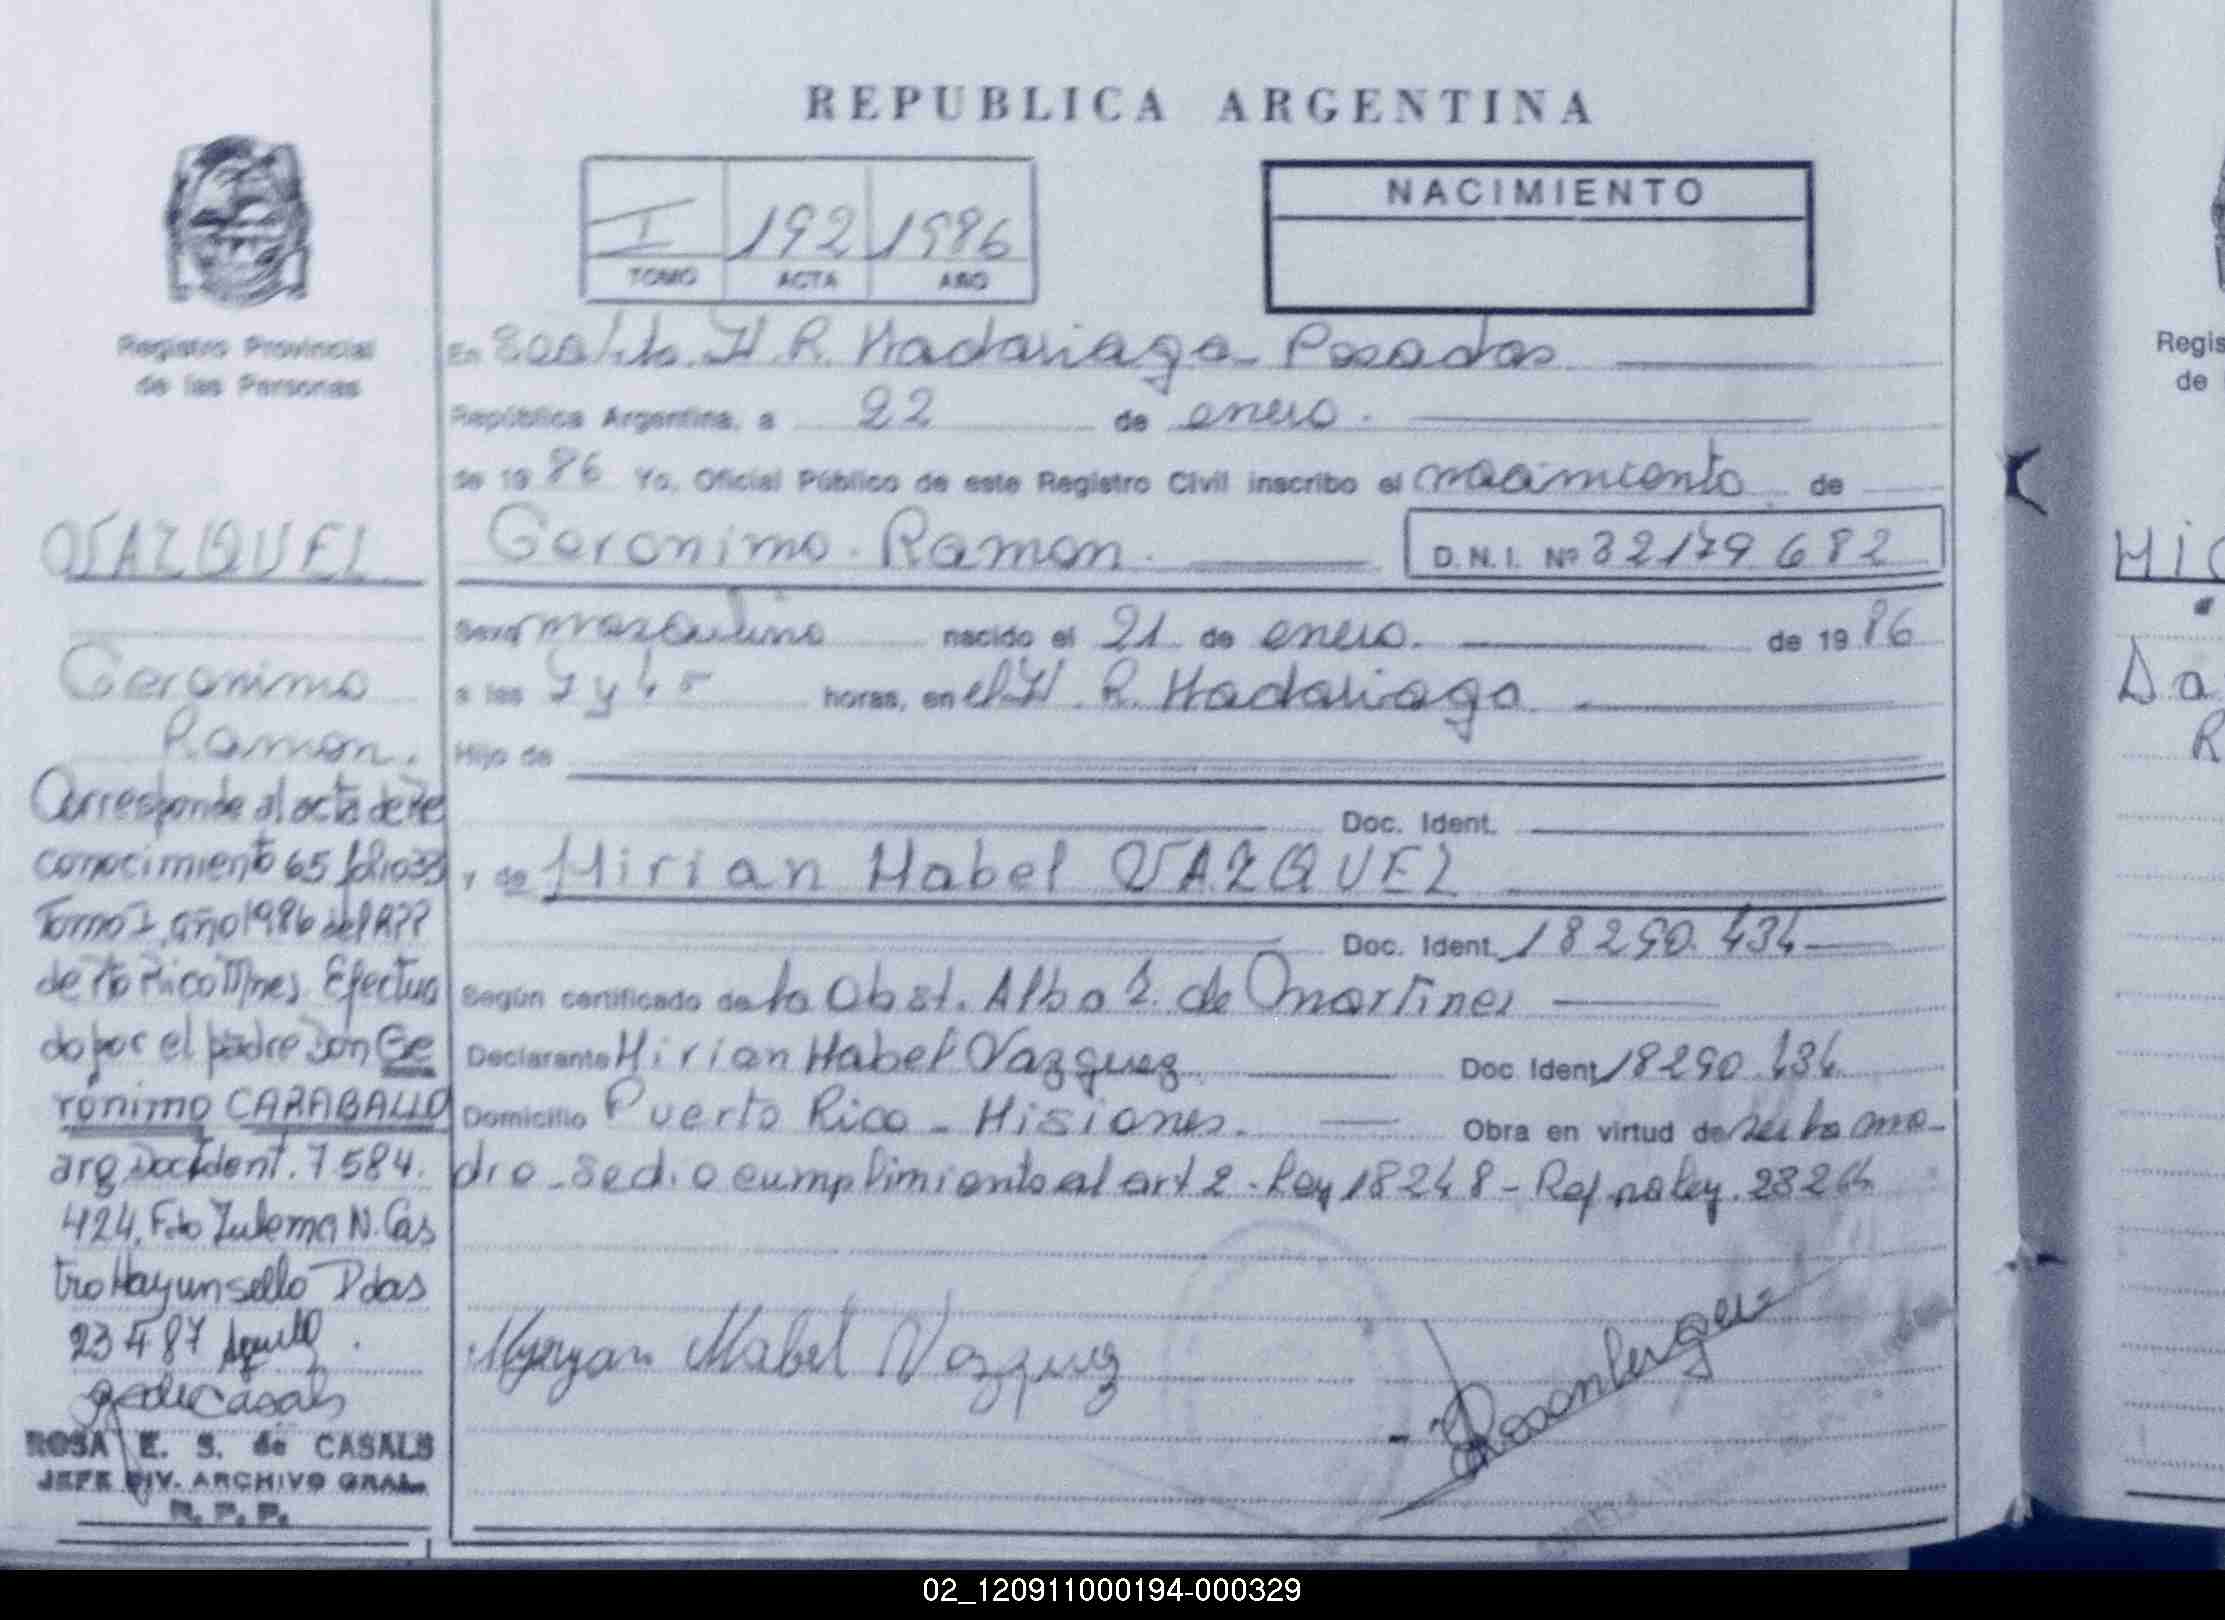 REPUBLICA ARGENTINA
I 192 1986
TOMO ACTA AÑO
NACIMIENTO
Registro Provincial
de las Personas
VAZQUEZ
Geronimo
Ramon.
Corresponde al acta de re
conocimiento 65 folio 33
Tomo I, año 1986 del RPP
de Pto Rico Mnes. Efectua
do por el padre Don Ge
rónimo CARABALLO
arg Doc Ident. 7.584.
424. Fdo Zulema N. Cas
tro Hay un sello Pdas
23 4 87
ROSA E. S. de CASALS
JEFE DIV. ARCHIVO GRAL.
R. P. P.
En H. R. Madariaga - Posadas
República Argentina, a 22 de enero.
de 19 86 Yo, Oficial Público de este Registro Civil inscribo el nacimiento de
Geronimo Ramon. D.N.I. Nº 32179682
Sexo masculino nacido el 21 de enero. de 19 86
a las 7 y 45 horas, en el H. R. Madariaga
Hijo de
Doc. Ident.
y de Mirian Mabel VAZQUEZ
Doc. Ident. 18290.434
Según certificado de la Obst. Alba Z. de Martinez
Declarante Mirian Mabel Vazquez Doc. Ident 18290.434
Domicilio Puerto Rico - Misiones. Obra en virtud de ser la ma-
dre - Se dio cumplimiento al art 2 - Ley 18248 - Ley 23264
Myryan Mabel Vazquez
Regis
de
Da
R
02_120911000194-000329